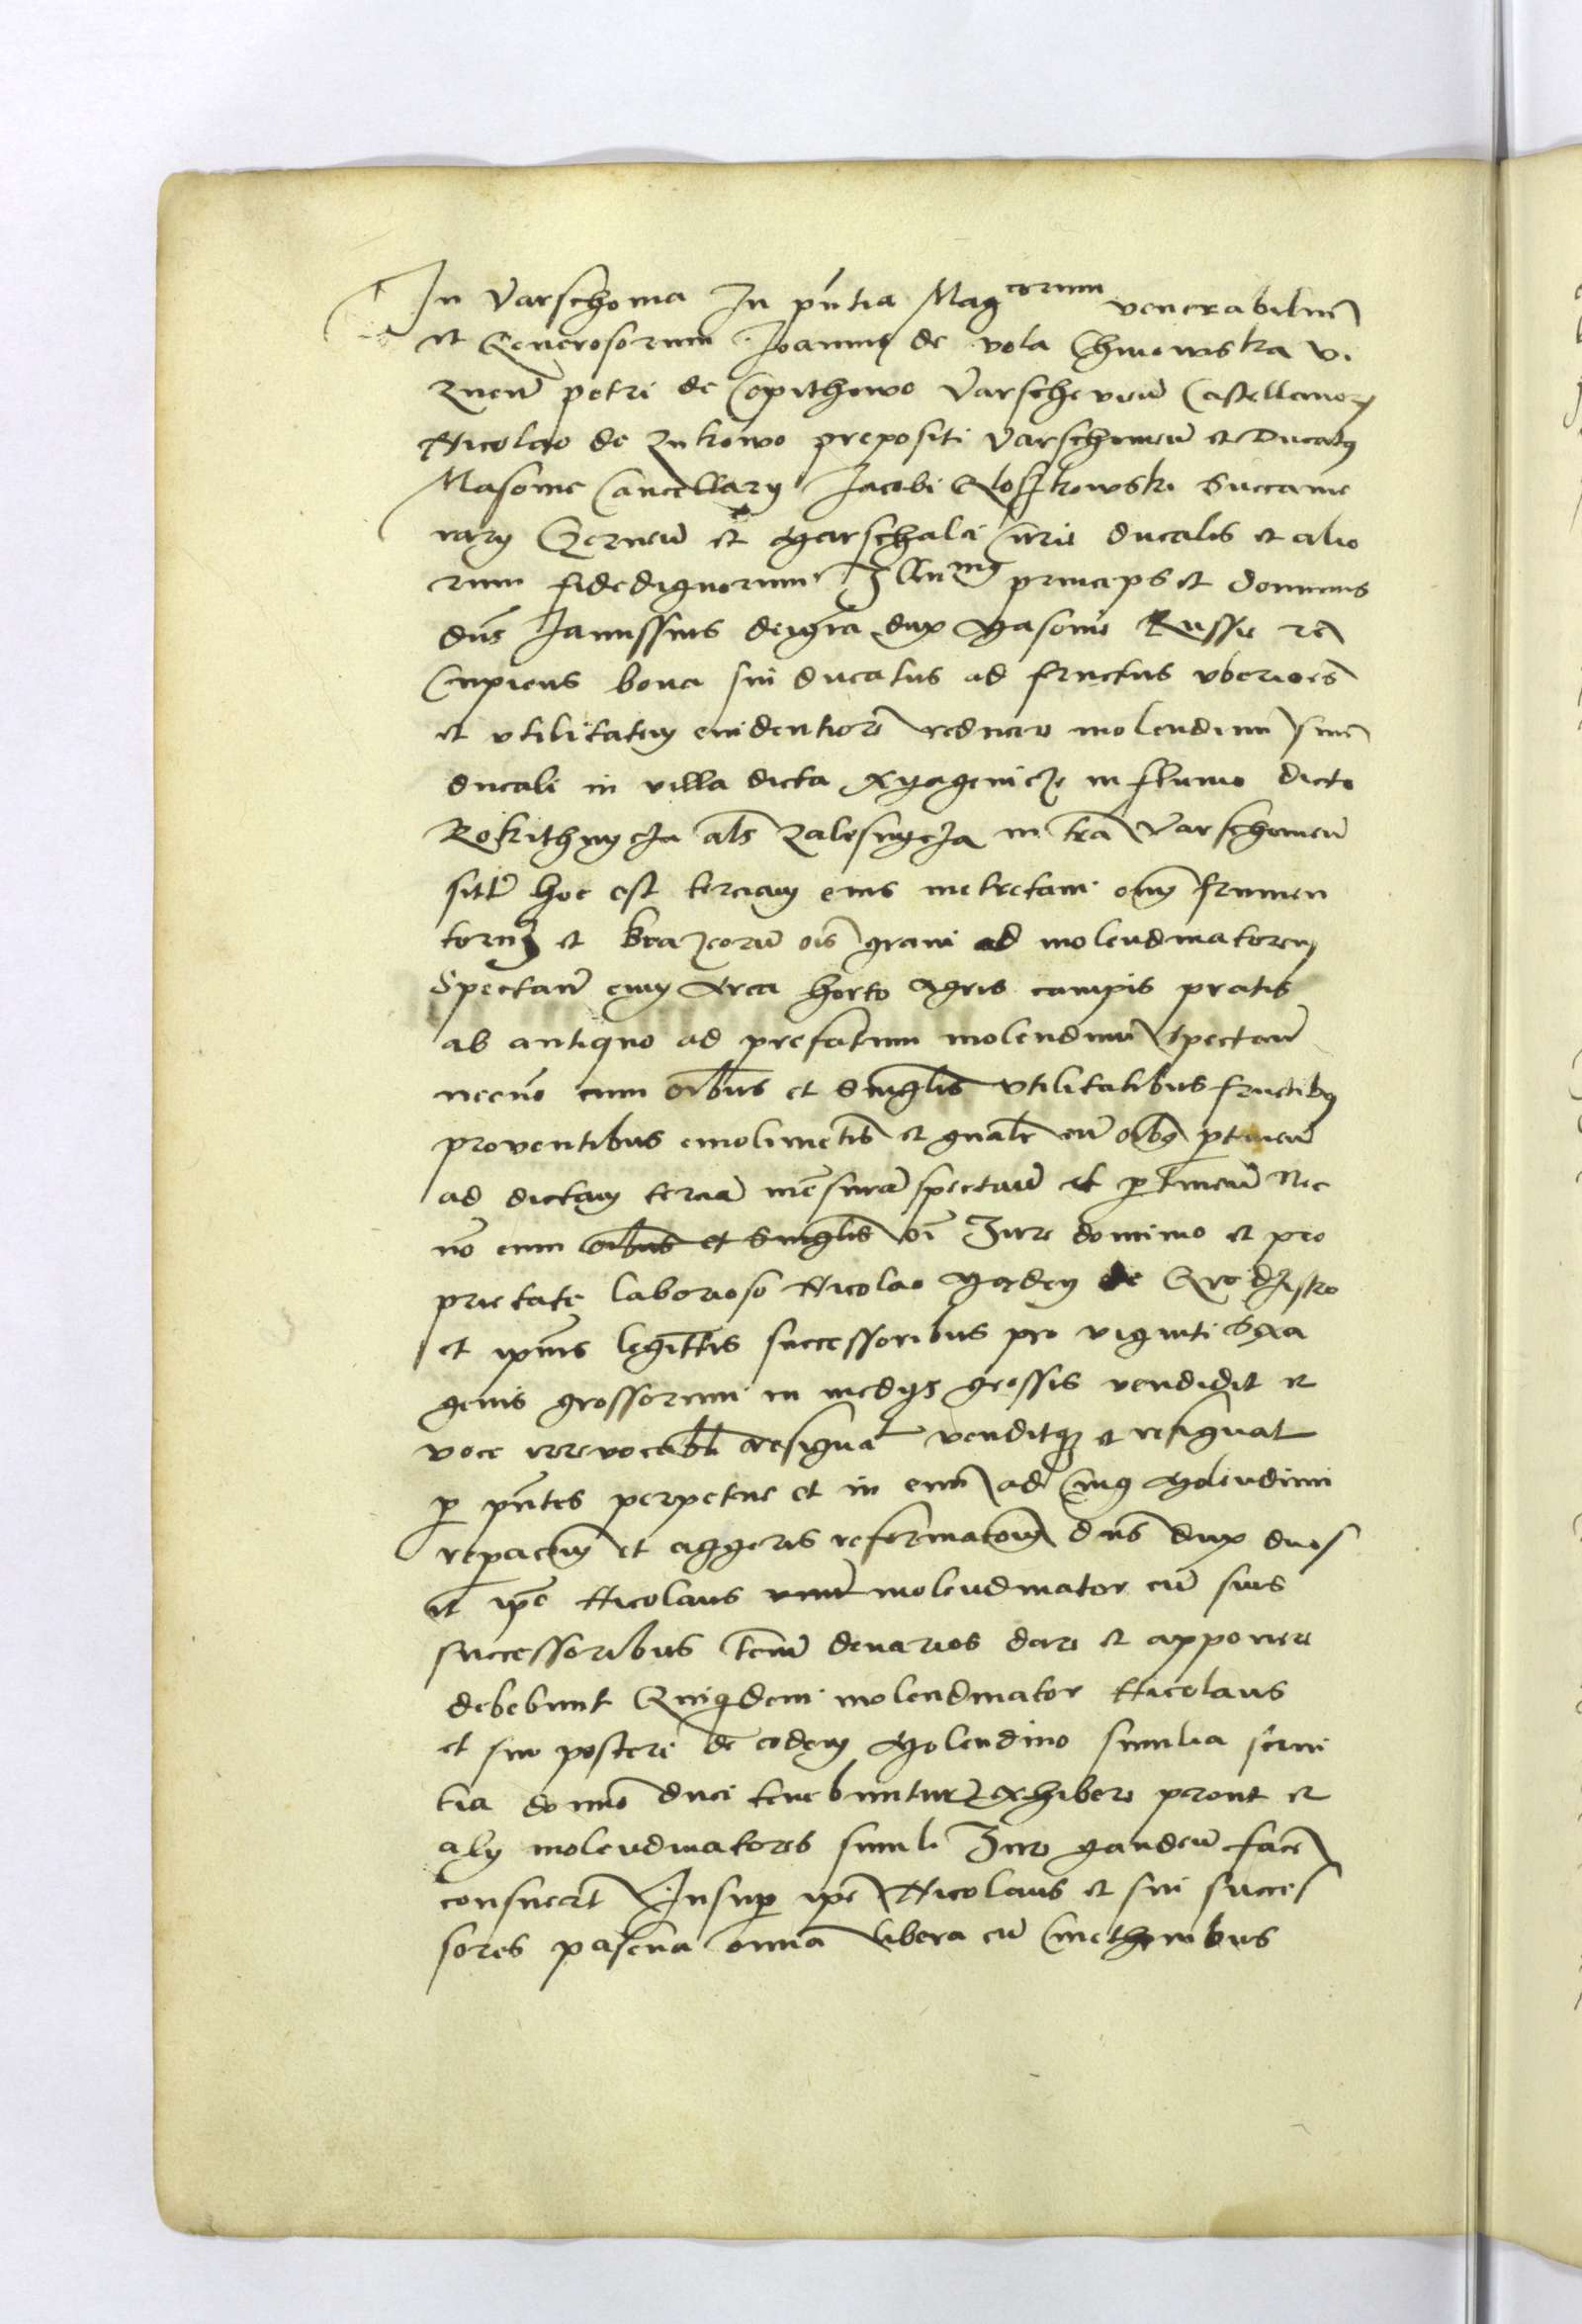 In Varschovia In pñtia Mag^corum venerabiliũ
et Generosorum Joannis de vola Chinowska Vi
znen̄ petri de Copithowo Varschevien̄ Castellanorꝝ
Nicolao de Zukowo prepositi Varschovien̄ et Ducatꝰ
Masovie Cancellarÿ Jacobi Gloskowski Succame
rarÿ Cernen̄ et Marschalci Curie ducalis et alio
rum fidedignorum Illu^mꝰ princeps et dominus
dn̄s Janussius dei grã dux Masovie Russie rc̃
Cupiens bona sui ducatus ad fructus vberiores
et vtilitatem evidentiorẽ reducere molendinũ suũ
ducale in villa dicta in fluvio dicto
Rokithnycza als Zalesnycza in trã Varschovien̄
sitũ hoc est terciam eius metretam omĩ frumen
torum et brazeorũ oĩs grani ad molendinatorem
Spectan̄ cum Area horto Agris campis pratis
ab antiquo ad prefatum molendinũ spectan̄
necnõ cum oĩbus et singlis vtilitatibus fructibꝰ
proventibus emolimẽtis et gnãlr cũ oĩbꝰ ꝑtinen̄
ad dictam terciã mẽsurã spectan̄ et ꝑtinen̄ Nec
nõ cum oĩbus et singlis oĩ Jure dominio et pro
prietate laborioso Nicolao de
et ipius legittĩs successoribus pro viginti sexa
genis grossorum in medÿs grossis vendidit et
voce irrevocabłi resignavit venditqꝫ et resignat
ꝑ pñtes perpetue et in evũ ad cuiꝰ Molendini
repacõem et aggeris reformacõem dn̄s dux duos
et ipẽ Nicolaus molendinator cũ suis
successoribus terciũ denarios dare et apponere
debebunt Quiquidem molendinator Nicolaus
et sui posteri de eodem Molendino similia servi
tia domino duci tenebuntur exhibere prout et
alÿ molendinatores simili Jure gauden̄ facẽ
consuevert̃ Insuꝑ ipẽ Nicolaus et sui succes
sores pascua omnia libera cũ Cmethonibus